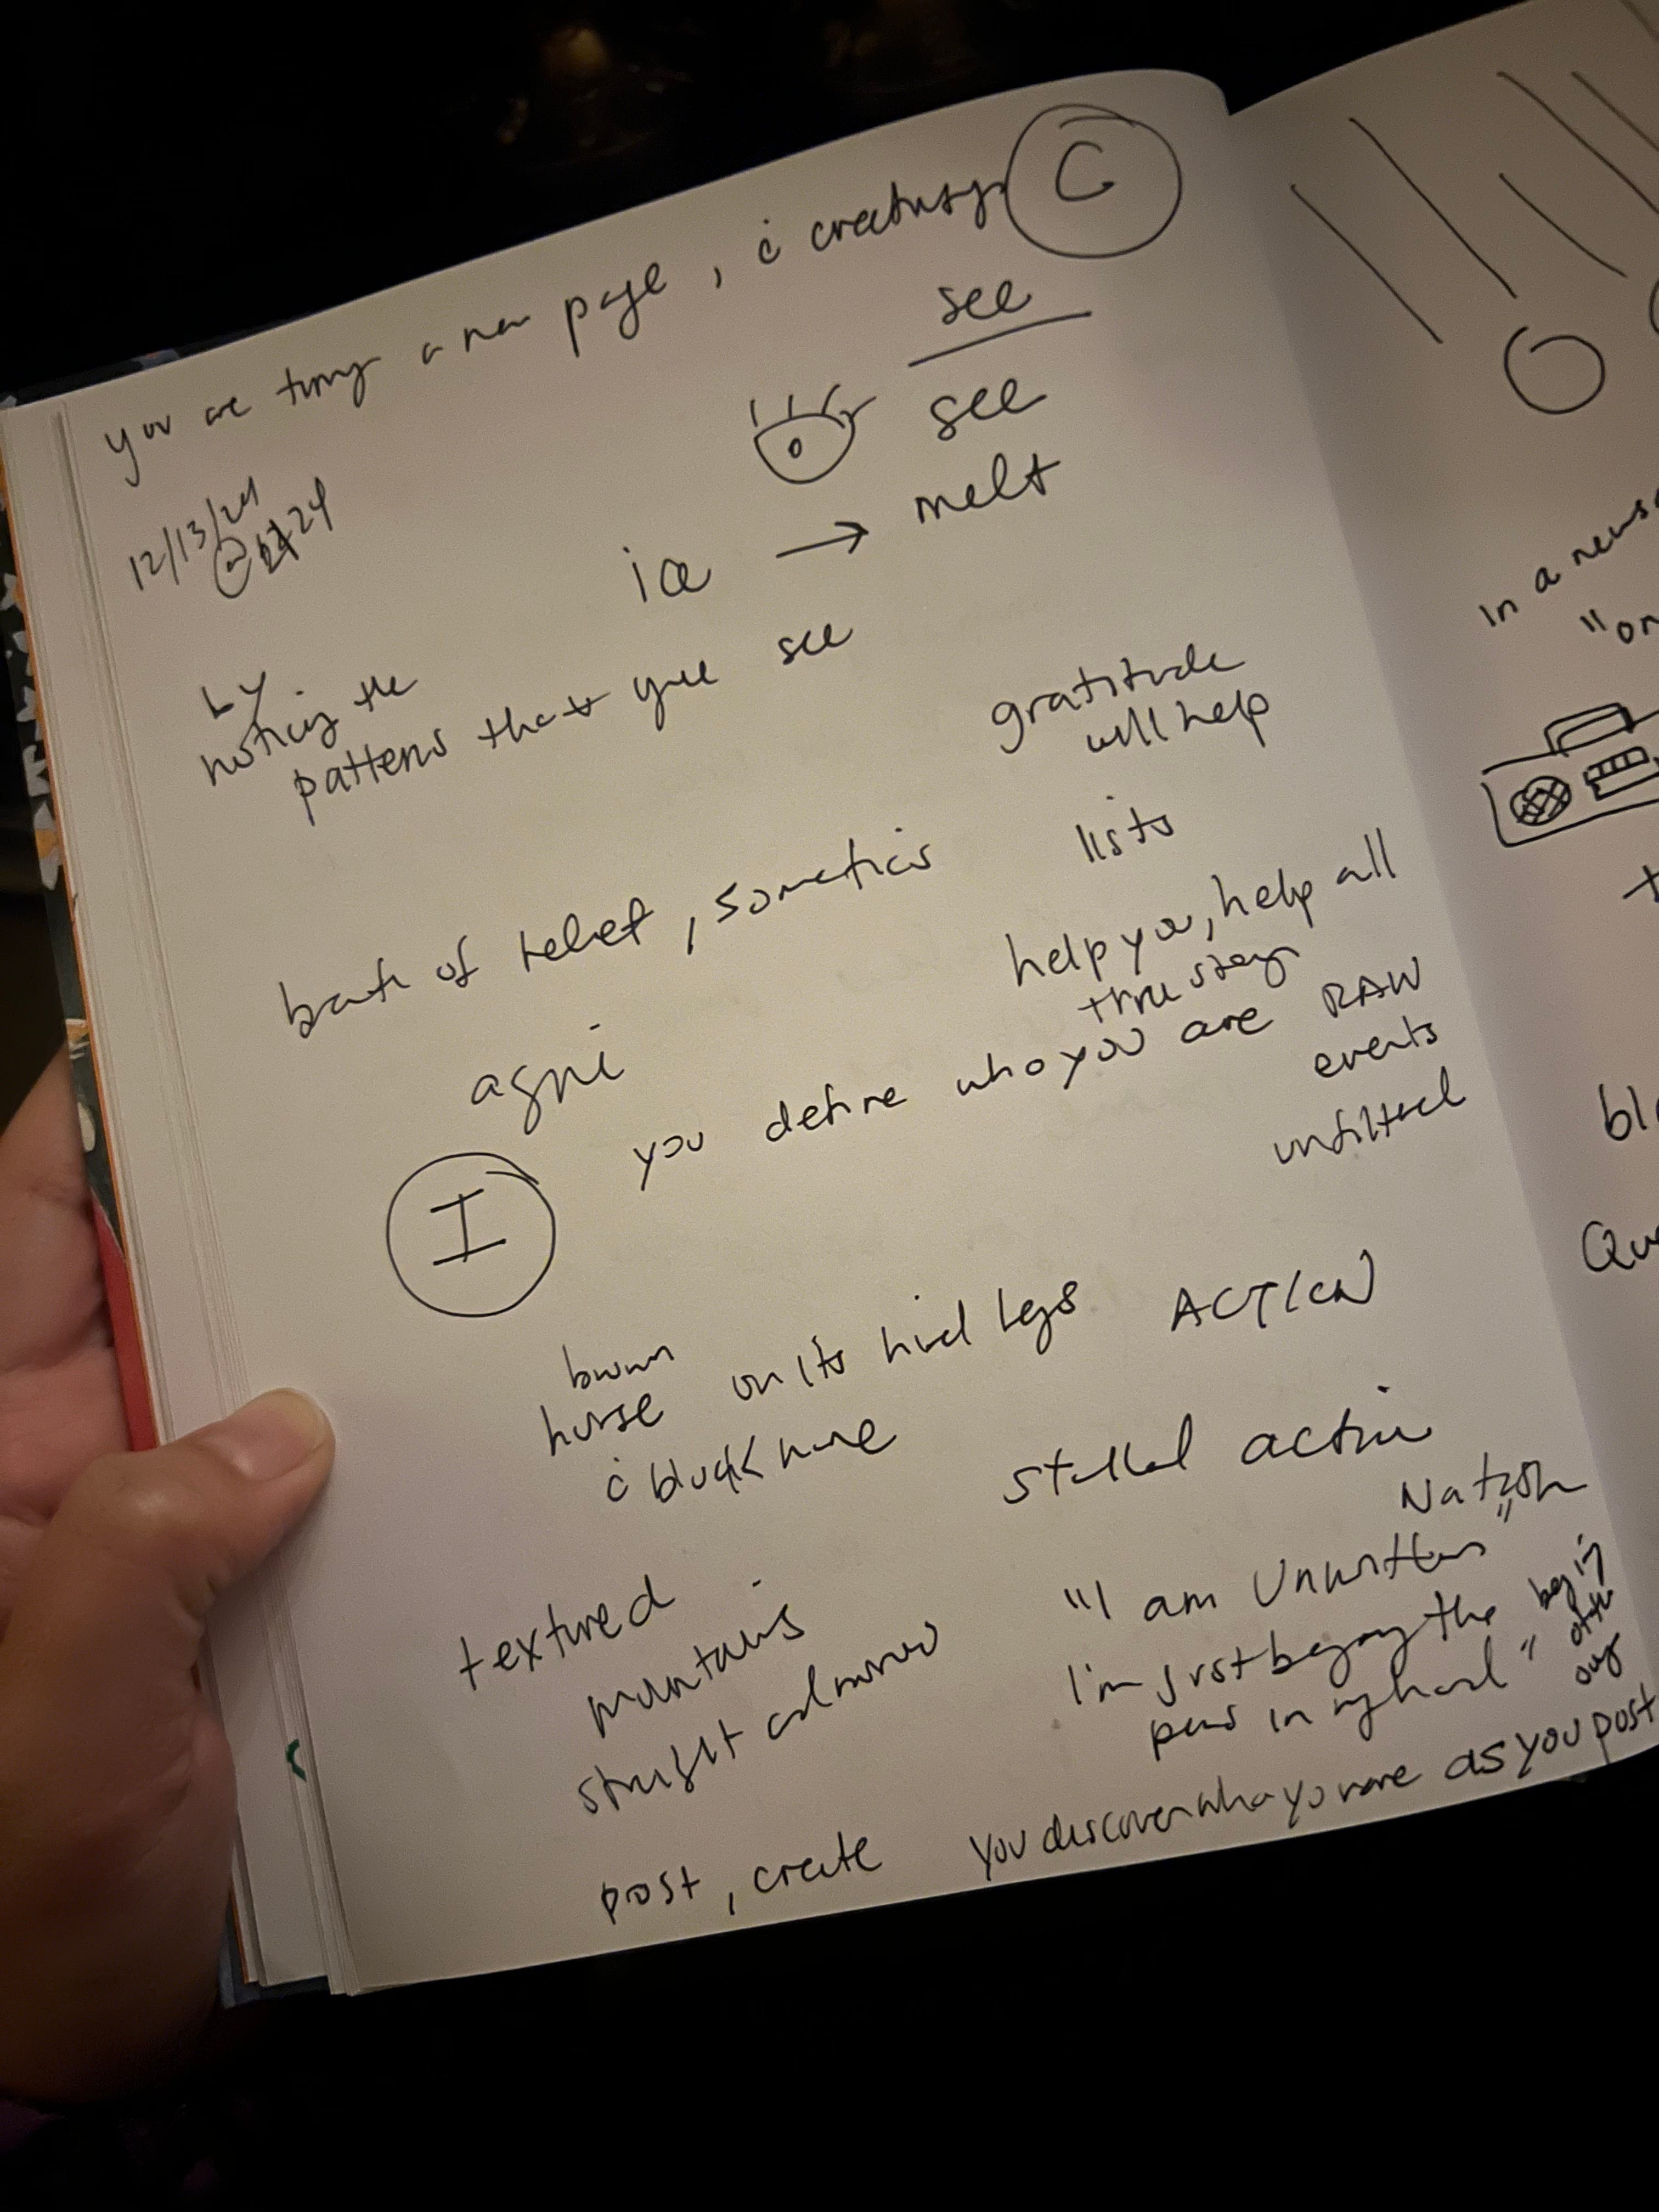 you are turng a new page, c̄
C
see
see
melt
12/13/24
@ 24
ice → melt
by
noticing the
patterns that you see
gratitude
will help
lists
bath of relief, somatics
help you, help all
agni
you define who you are RAW
events
unfiltered
I
brown
horse on its hind legs ACTION
c̄ black mane
stalled action
Natash
textured
mountains
"I am Unwritten"
I'm just beging the
pens in my hand"
straight
post, create you discover who you are as you post
In a news
"on
bl
Qu